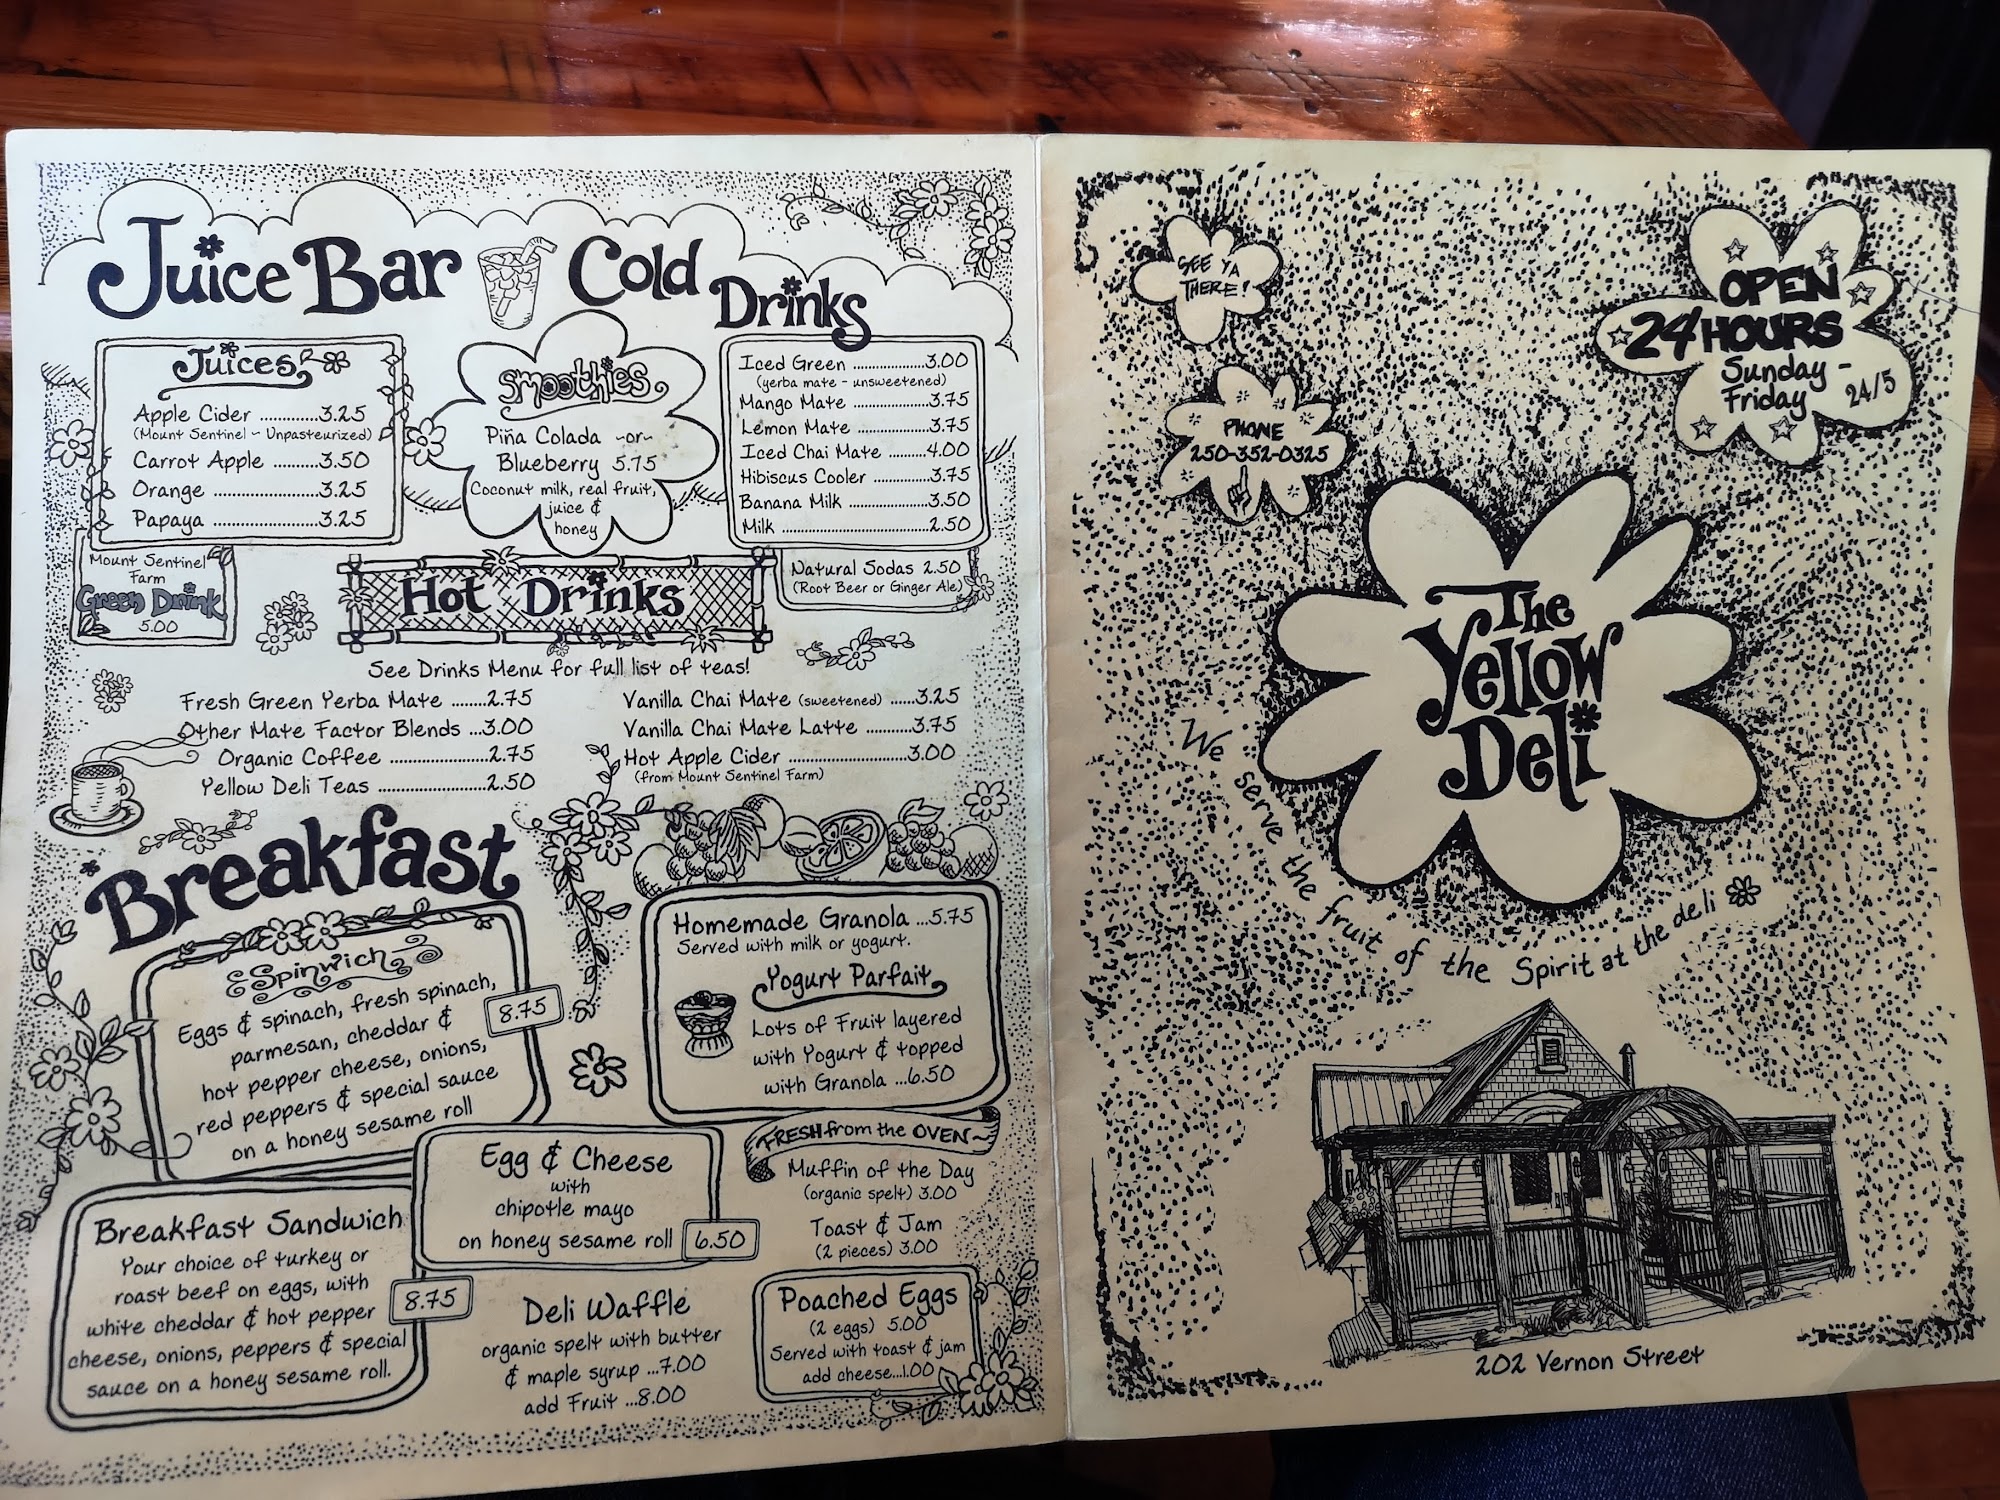 Juice Bar Cold
Drinks
Juices
Apple Cider ............3.25
(Mount Sentinel ~ Unpasteurized)
Carrot Apple ..........3.50
Orange .......................3.25
Papaya .......................3.25
Mount Sentinel
Farm
Green Drink
5.00
Smoothies
Piña Colada ~or~
Blueberry 5.75
Coconut milk, real fruit,
juice &
honey
Iced Green ....................3.00
(yerba mate - unsweetened)
Mango Mate .....................3.75
Lemon Mate .....................3.75
Iced Chai Mate .........4.00
Hibiscus Cooler ...............3.75
Banana Milk ......................3.50
Milk ..........................................2.50
Natural Sodas 2.50
(Root Beer or Ginger Ale)
Hot Drinks
See Drinks Menu for full list of teas!
Fresh Green Yerba Mate ........2.75
Other Mate Factor Blends ...3.00
Organic Coffee ......................2.75
Yellow Deli Teas .........................2.50
Vanilla Chai Mate (sweetened) ......3.25
Vanilla Chai Mate Latte ...........3.75
Hot Apple Cider ...........................3.00
(from Mount Sentinel Farm)
Breakfast
Spinwich
Eggs & spinach, fresh spinach,
parmesan, cheddar &
hot pepper cheese, onions,
red peppers & special sauce
on a honey sesame roll
8.75
Egg & Cheese
with
chipotle mayo
on honey sesame roll
6.50
Breakfast Sandwich
Your choice of turkey or
roast beef on eggs, with
white cheddar & hot pepper
cheese, onions, peppers & special
sauce on a honey sesame roll.
8.75
Deli Waffle
organic spelt with butter
& maple syrup ...7.00
add Fruit ...8.00
Homemade Granola ...5.75
Served with milk or yogurt.
Yogurt Parfait
Lots of Fruit layered
with Yogurt & topped
with Granola ...6.50
FRESH from the OVEN~
Muffin of the Day
(organic spelt) 3.00
Toast & Jam
(2 pieces) 3.00
Poached Eggs
(2 eggs) 5.00
Served with toast & jam
add cheese...1.00
SEE YA
THERE!
PHONE
250-352-0325
OPEN
24 HOURS
Sunday -
Friday 24/5
The
Yellow
Deli
We serve the fruit of the Spirit at the deli
202 Vernon Street